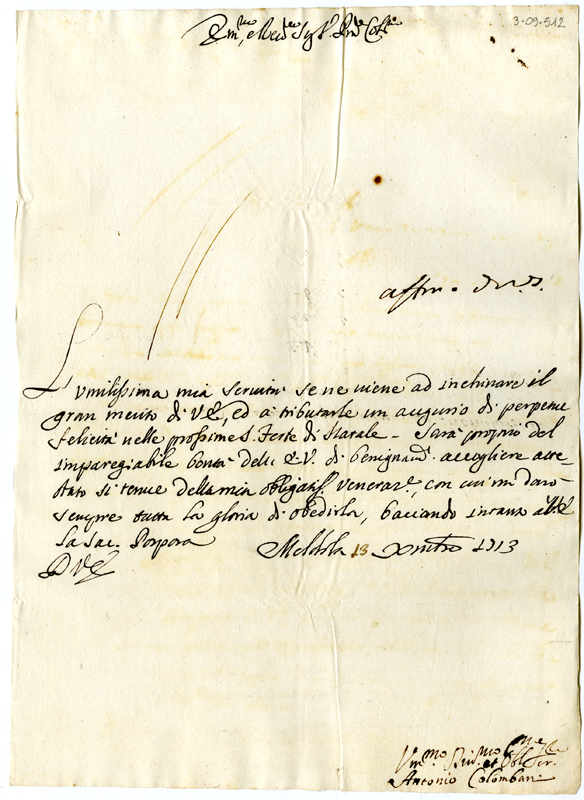 3-09-512
Em.mo, e Reu.mo Sig.r Pne Col.mo
L'vmilissima mia seruitù se ne uiene ad inchinare il
gran merito di V.E., ed à tributarle un augurio di perpetue
felicità nelle prossime S. Feste di Natale. Sarà proprio del
impareggiabile bontà dell' E.V. di benignam.te accogliere atte-
stato si tenue della mia obligatis.a veneraz.e, con cui mi darò
sempre tutta la gloria di obedirla, baciando intanto all'E.V.
la Sac. Porpora
D.V.E.
Meldola 13 Xmbre 1713
Vm.mo Diu.mo et Obl. Ser.
Antonio Colombani